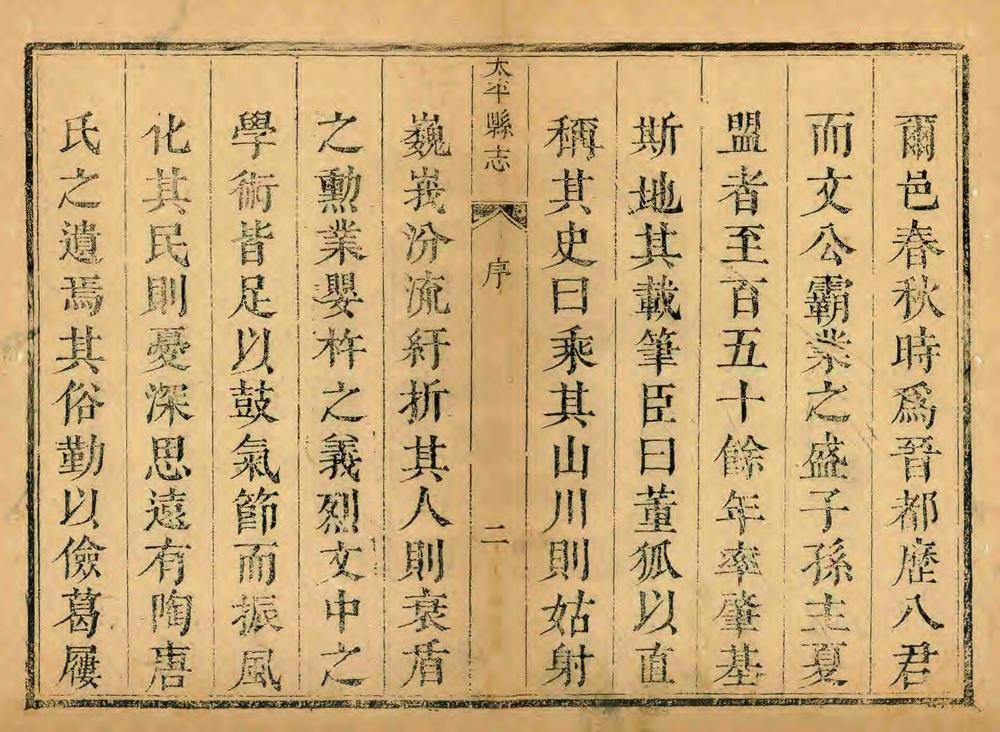 爾邑春秋時爲晉都歷八君
而文公霸業之盛子孫主夏
盟者至百五十餘年率肇基
斯地其載筆臣曰董狐以直
稱其史曰乘其山川則姑射
太平縣志 序 二
巍峩汾流紆折其人則衰盾
之勳業嬰杵之義烈文中之
學術皆足以鼓氣節而振風
化其民則憂深思遠有陶唐
氏之遺焉其俗勤以儉葛屨